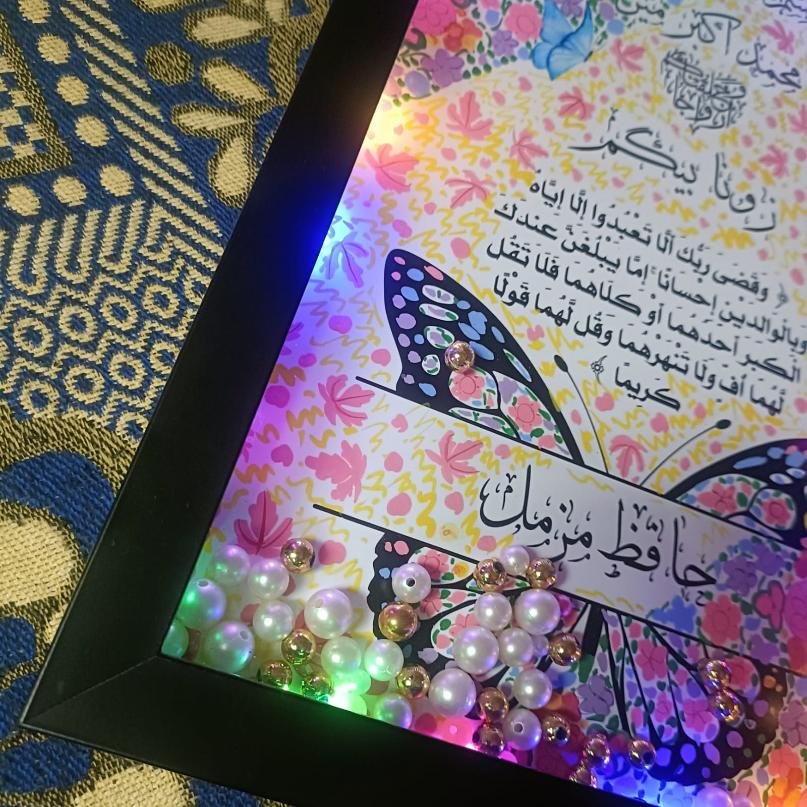 محمد اکبر
زونا بیگم
﴿ وَقَضَىٰ رَبُّكَ أَلَّا تَعْبُدُوا إِلَّا إِيَّاهُ
وَبِالْوَالِدَيْنِ إِحْسَانًا ۚ إِمَّا يَبْلُغَنَّ عِندَكَ
الْكِبَرَ أَحَدُهُمَا أَوْ كِلَاهُمَا فَلَا تَقُل
لَّهُمَا أُفٍّ وَلَا تَنْهَرْهُمَا وَقُل لَّهُمَا قَوْلًا
كَرِيمًا ﴾
حافظ مزمل